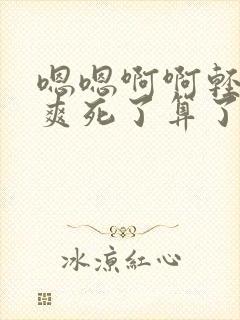 嗯嗯啊啊轻
爽死了算了
冰凉红心